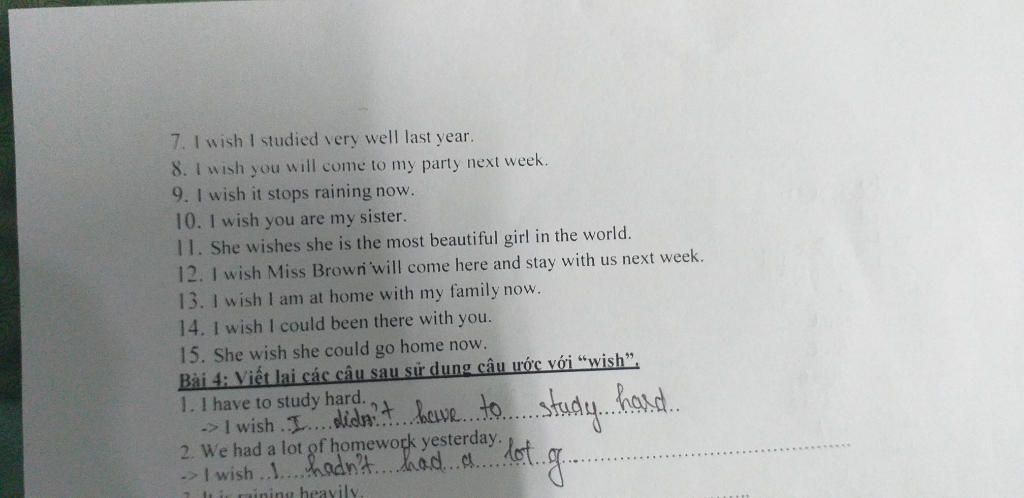 7. I wish I studied very well last year.
8. I wish you will come to my party next week.
9. I wish it stops raining now.
10. I wish you are my sister.
11. She wishes she is the most beautiful girl in the world.
12. I wish Miss Brown will come here and stay with us next week.
13. I wish I am at home with my family now.
14. I wish I could been there with you.
15. She wish she could go home now.
Bài 4: Viết lại các câu sau sử dụng câu ước với “wish”.
1. I have to study hard.
-> I wish ..I....didn't...have...to......study...hard..
2. We had a lot of homework yesterday.
-> I wish ..I....hadn't....had...a.....lot..g.......................................
3. It is raining heavily.